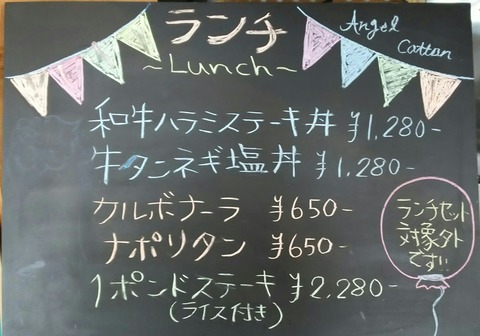 ランチ
~Lunch~
Angel
Cotton
和牛ハラミステーキ丼 ¥1,280-
牛タンネギ塩丼 ¥1,280-
カルボナーラ ¥650-
ナポリタン ¥650-
1ポンドステーキ ¥2,280-
(ライス付き)
ランチセット
対象外
です!!